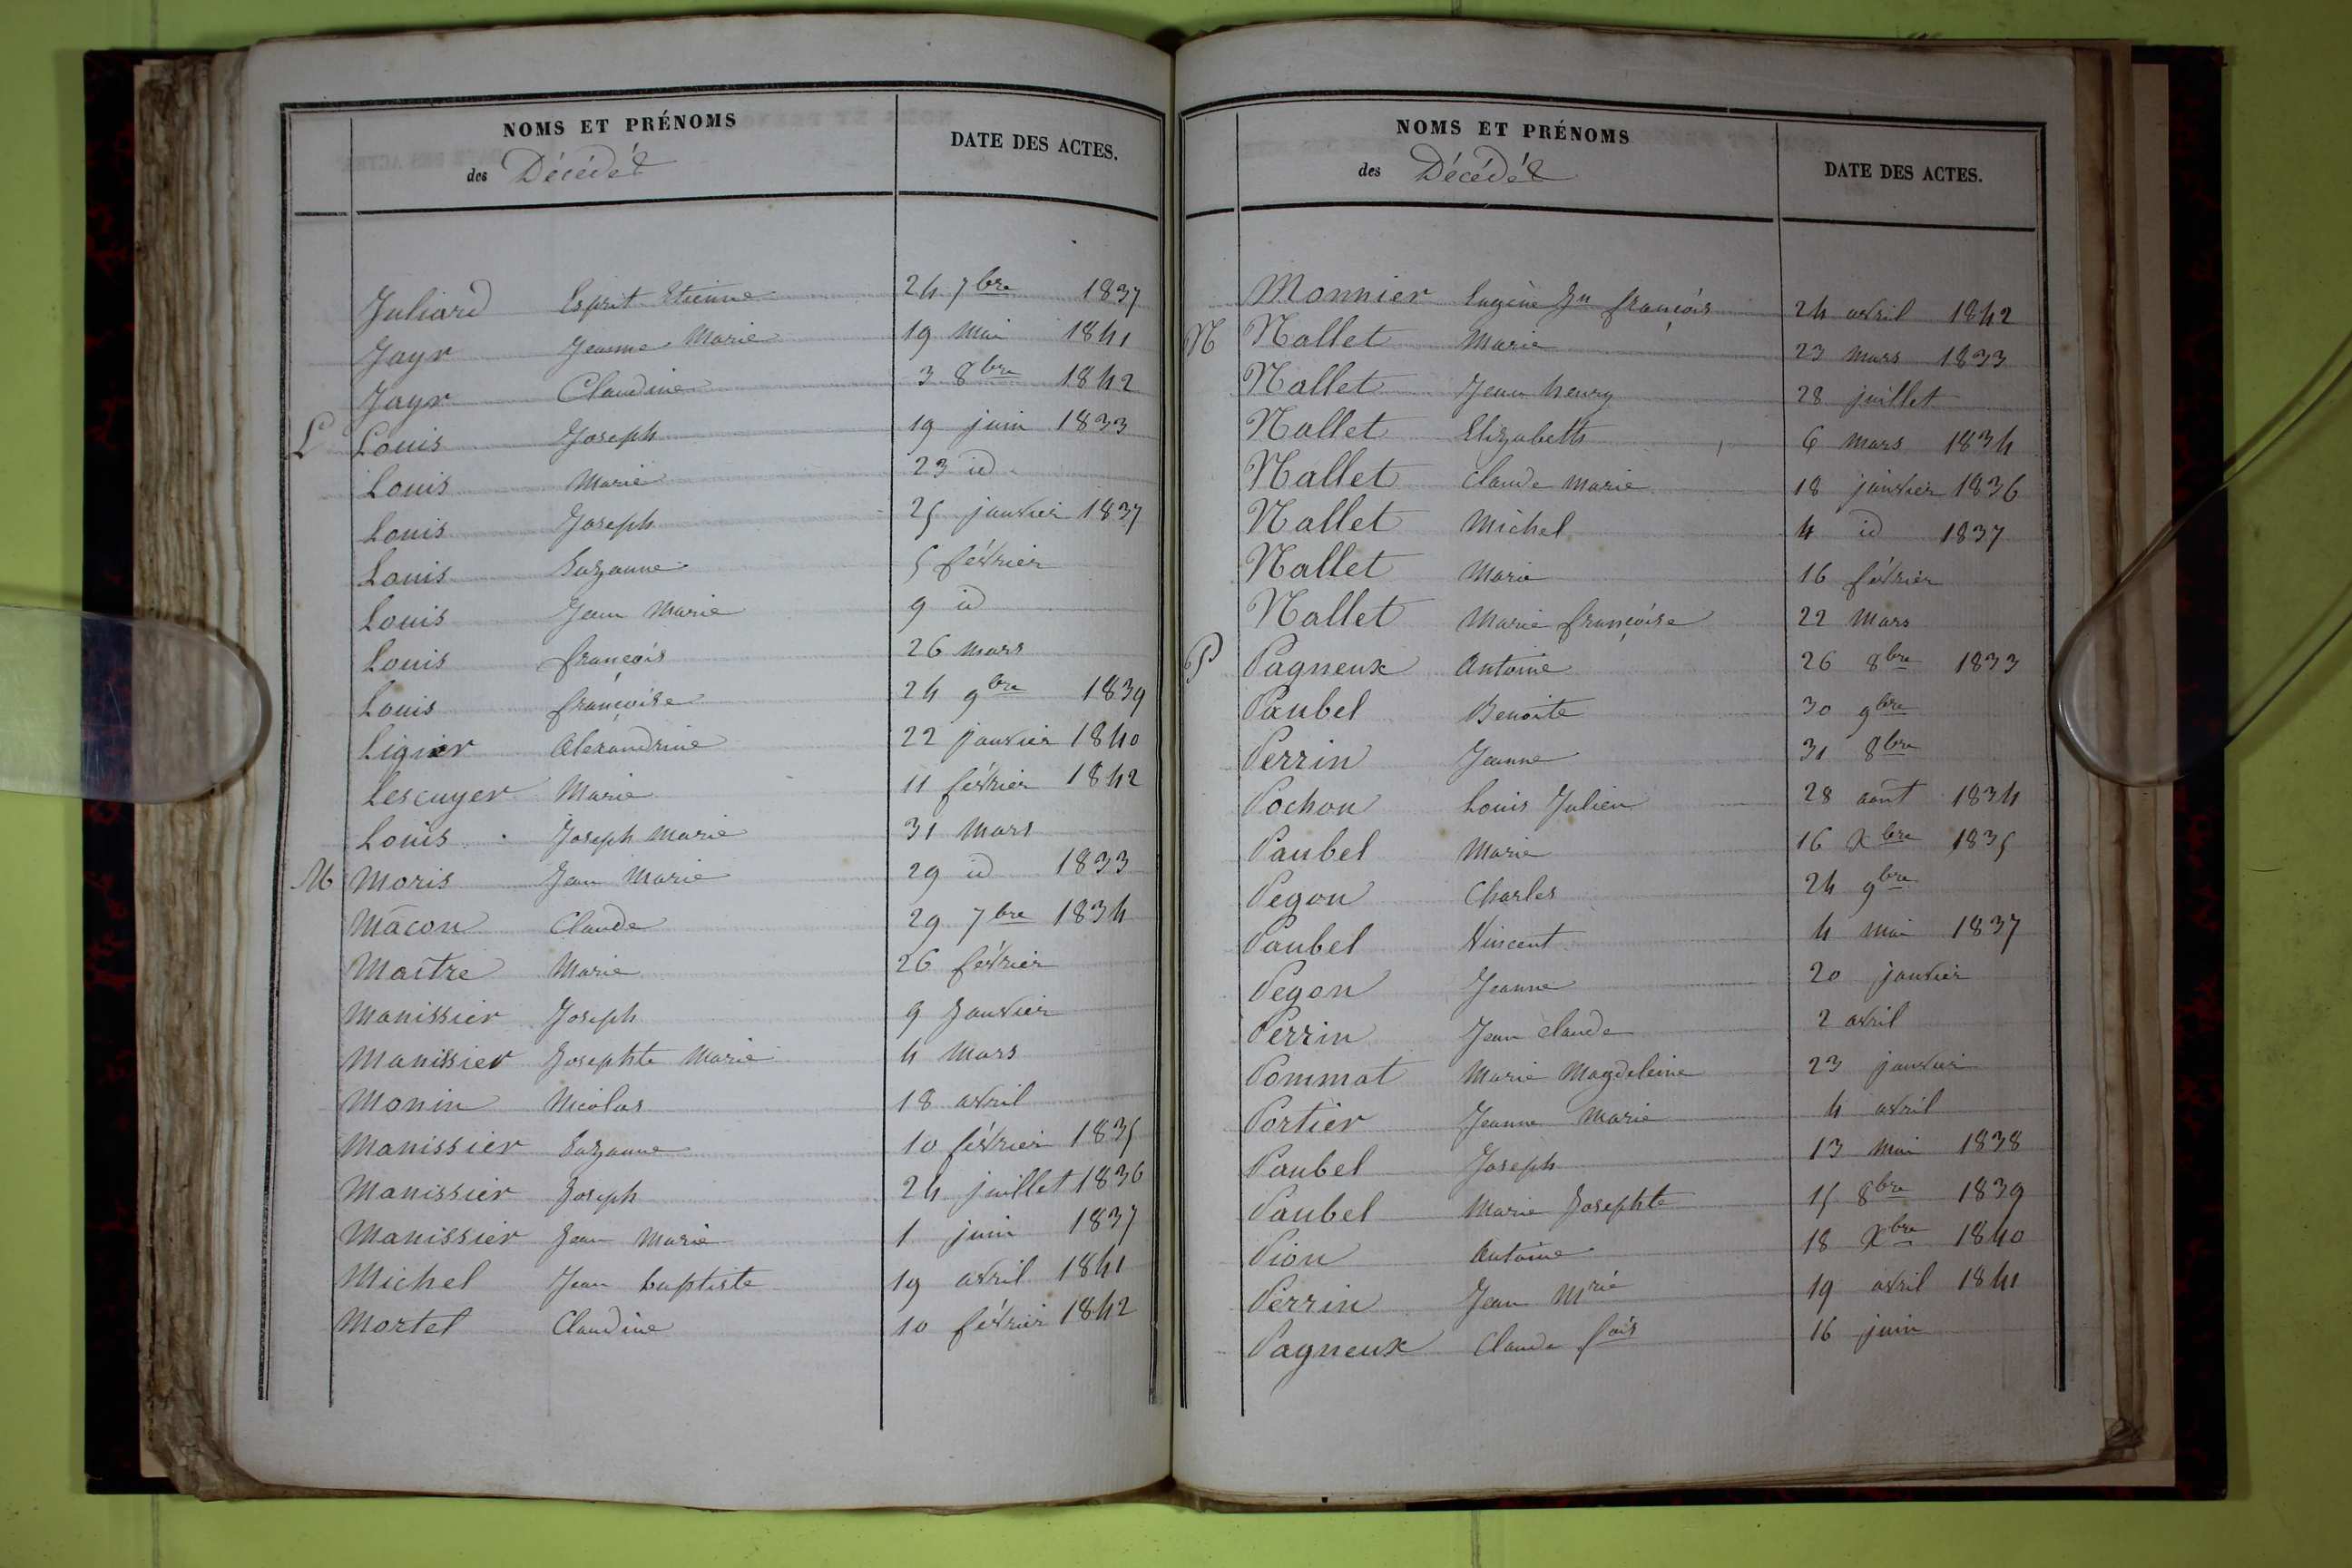 NOMS ET PRÉNOMS
des Décédés
DATE DES ACTES.
Juliard Esprit Etienne 24 7bre 1837
Jayr Jeanne Marie 19 mai 1841
Jayr Claudine 3 8bre 1842
L Louis Joseph 19 juin 1833
Louis Marie 23 id
Louis Joseph 25 janvier 1837
Louis Suzanne 5 février
Louis Jean Marie 9 id
Louis françois 26 mars
Louis françoise 24 9bre 1839
Ligier Alexandrine 22 janvier 1840
Lescuyer Marie 11 février 1842
Louis Joseph Marie 31 mars
M Moris Jean Marie 29 id 1833
Mâcon Claude 29 7bre 1834
Maitre Marie 26 février
Manissier Joseph 9 Janvier
Manissier Josephte Marie 4 Mars
Monin Nicolas 18 avril
Manissier Suzanne 10 février 1835
Manissier Joseph 24 juillet 1836
Manissier Jean Marie 1 juin 1837
Michel Jean baptiste 19 avril 1841
Mortel Claudine 10 février 1842
NOMS ET PRÉNOMS
des Décédés
DATE DES ACTES.
Monnier Eugène Jn françois 24 avril 1842
N Nallet Marie 23 mars 1833
Nallet Jean henry 28 juillet
Nallet Elizabeth 6 mars 1834
Nallet Claude Marie 18 janvier 1836
Nallet Michel 4 id 1837
Nallet Marie 16 février
Nallet Marie françoise 22 mars
P Pagneux Antoine 26 8bre 1833
Paubel Benoite 30 9bre
Perrin Jeanne 31 8bre
Pochon Louis Julien 28 août 1834
Paubel Marie 16 Xbre 1835
Pegon Charles 24 9bre
Paubel Vincent 4 mai 1837
Pegon Jeanne 20 janvier
Perrin Jean claude 2 avril
Pommat Marie Magdeleine 23 janvier
Portier Jeanne Marie 4 avril
Paubel Joseph 13 mai 1838
Paubel Marie Josephte 15 8bre 1839
Pion Antoine 18 Xbre 1840
Perrin Jean Mrie 19 avril 1841
Pagneux Claude fois 16 juin